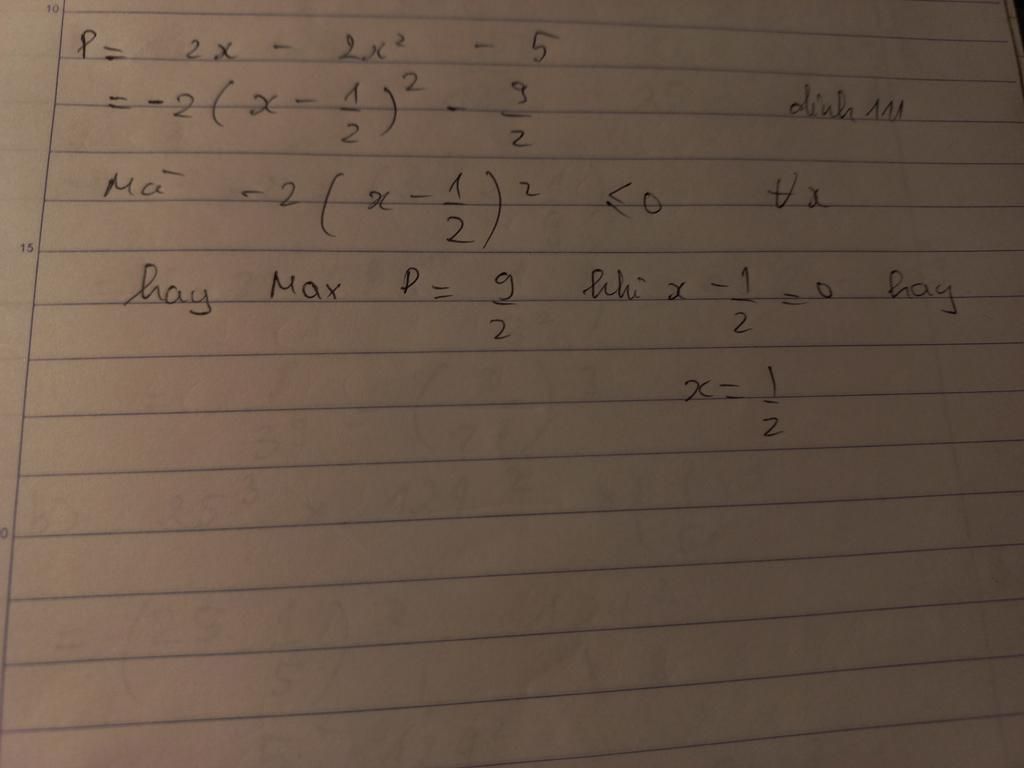 10
P = 2x - 2x² - 5
= -2(x - 1/2)² - 9/2
Mà -2(x - 1/2)² ≤ 0 ∀x
15
hay Max P = 9/2 khi x - 1/2 = 0 hay
x = 1/2
0